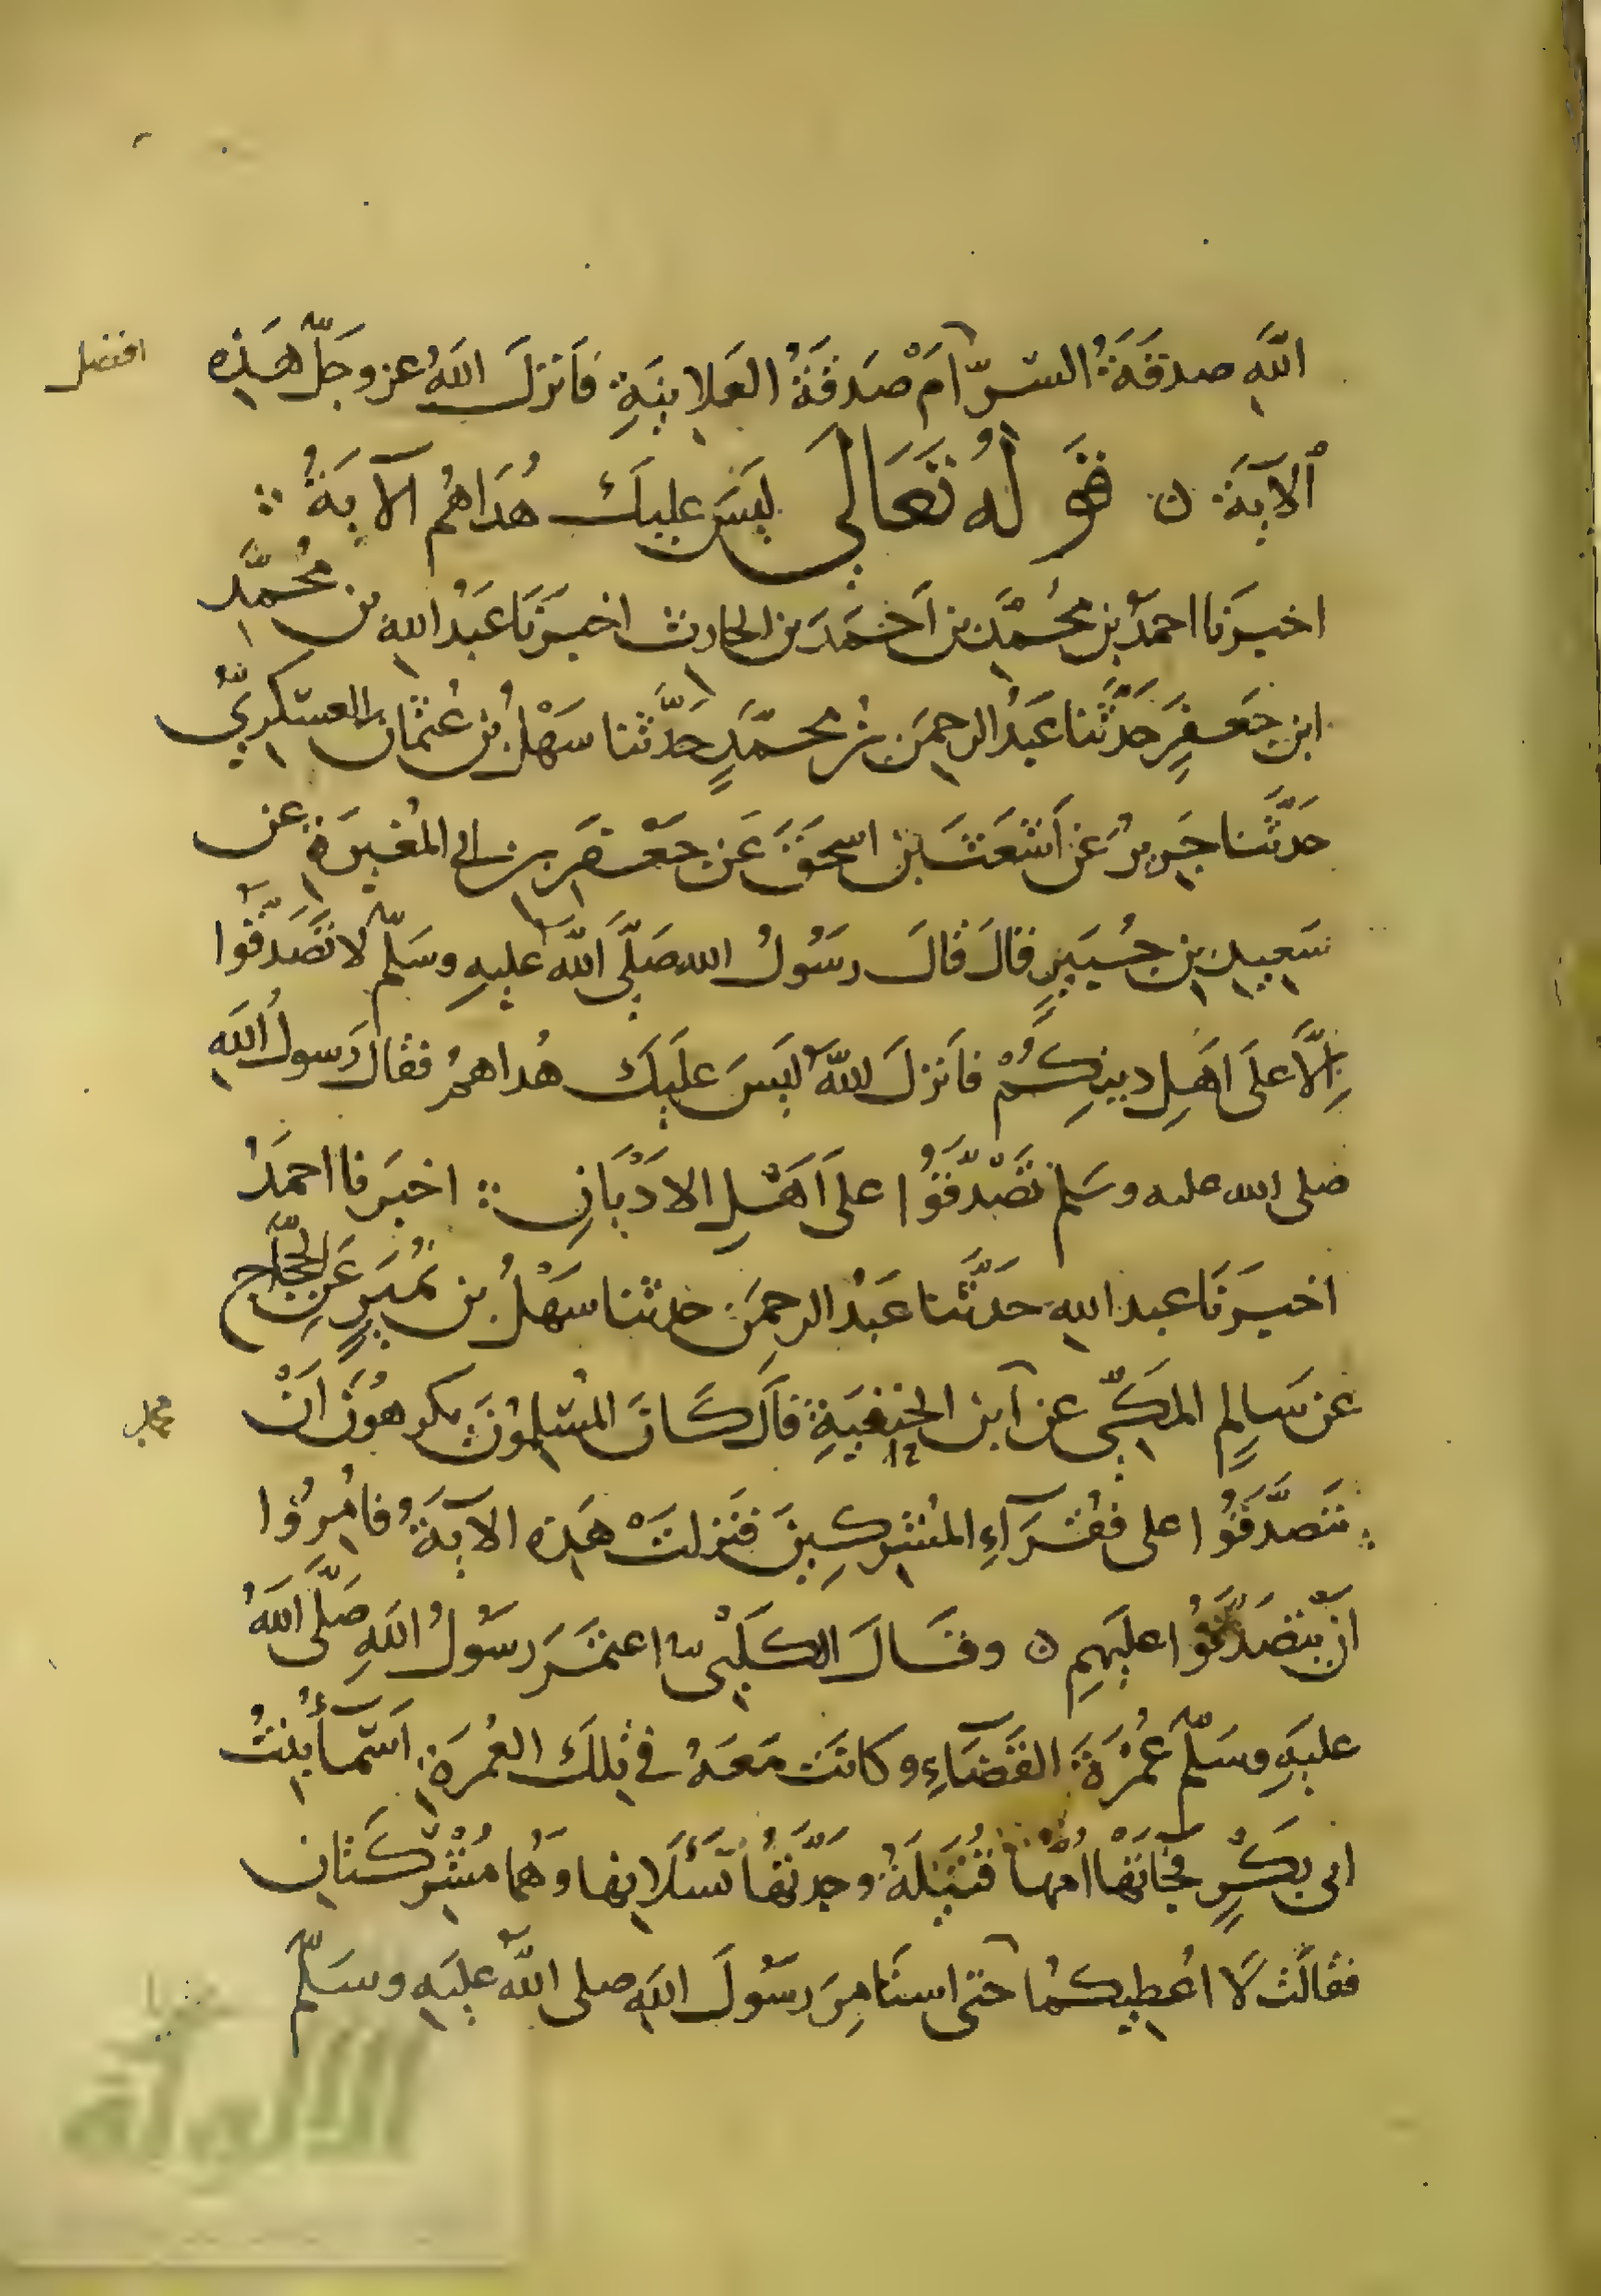 اللَّهِ صدقَةُ السّرّ أمْ صَدقَةُ العَلانِيَةِ فَأنزلَ اللهُ عز وجلّ هَذِه
افضل
الآيَةَ ن قَوْلُهُ تَعَالَى لَيسَ عليكَ هُدَاهُم الآيَةُ
اخبرَنا احمدُ بن محُمَّد بن أحمَد بن الحارث اخبرَنَا عَبدُ الله بن مُحمَّد
ابن جَعفرٍ حَدَّثَنا عَبدُ الرحمَن بن محمّدٍ حَدَّثنا سَهْلُ بن عُثمان العسكريُّ
حَدَّثَنا جَريرُ عَن أشعَثَ بن اسحقَ عَن جَعْفَر بن ابي المُغيرَة عن
سَعيدِ بن جُبَيرٍ قالَ قالَ رسُولُ الله صَلَّى اللَّه عليهِ وسَلّم لا تَصَدَّقُوا
إلّا عَلَى أهلِ دينِكُمْ فأنزلَ اللَّه لَيسَ عليكَ هُداهمُ فقالَ رَسولُ اللهِ
صلى الله عليه وسَلم تَصَدَّقُوا على أهْلِ الأدْيَانِ اخبَرنا احمَدُ
اخبرَنَا عبد اللهِ حدَّثَنا عَبْدُ الرحمَن حدثنا سَهْلُ بن نُمَيرٍ عَنِ الحجّاج
عن سَالِمٍ المكيِّ عن ابن الحنفيَةِ قالَ كَانَ المُسْلِمُونَ يكرهُونَ أنْ
محمد
يتَصدَّقُوا على فقرَآءِ المُشركِينَ فنَزلتْ هَذه الآيَةُ فأُمِرُوا
ان يتَصَدَّقُوا عليَهِم ن وقَالَ الكلبْي اعتمَر رسُولُ اللهِ صَلَّى اللهُ
عليَهِ وسَلّم عُمْرَة القَضَاءِ وكانَت مَعَهُ في تلكَ العُمرَة أسْمآءُ بنتُ
ابى بكَرٍ فجَآءَتها أمّهَا قُتَيْلَةُ وجَدَّتُهَا تسْئَلانِها وهُمَا مُشْركتان
فقالَت لَا اعُطيكمُا حتى استَأمِرَ رسُولَ اللهِ صلى اللَّه عليَهِ وسَلّم
الألوكة